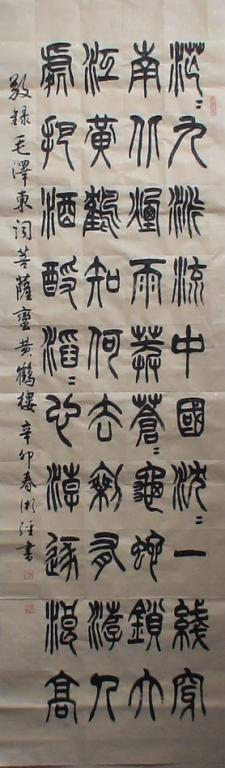 茫〻九派流中國沈〻一綫穿
南北煙雨莽蒼〻龜蛇鎖大
江黃鶴知何去剩有游人
處把酒酹滔〻心潮逐浪高
敬錄毛澤東詞菩薩蠻黃鶴樓 辛卯春 書